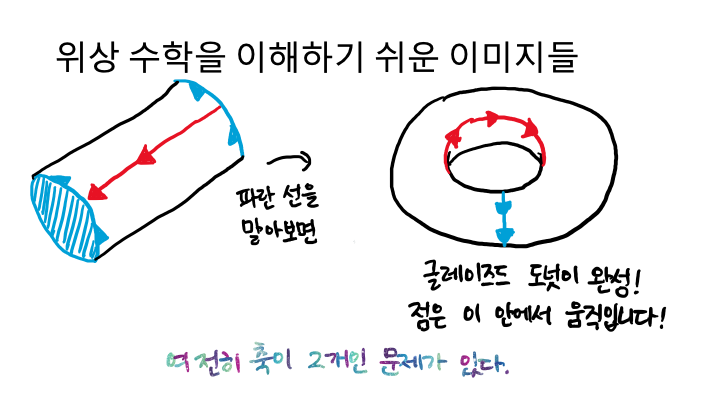 위상 수학을 이해하기 쉬운 이미지들
파란 선을
말아보면
글레이즈드 도넛이 완성!
점은 이 안에서 움직입니다!
여전히 축이 2개인 문제가 있다.